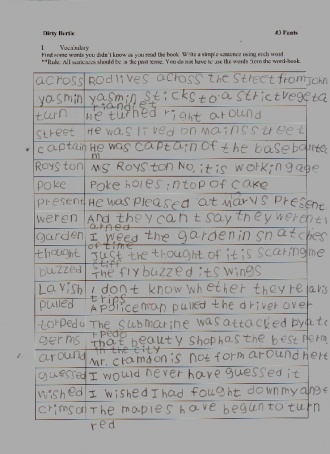 Dirty Bertie #3 Pants
1 Vocabulary
Find some words you didn't know as you read the book. Write a simple sentence using each word.
**Rule: All sentences should be in the past tense. You do not have to use the words from the word-book.
across Rod lives across the street from John
yasmin yasmin sticks to a strict vegeta
rian diet
turn He turned right around
street He was lived on main street
captain He was captain of the baseball tee
m
Royston Ms Royston No, it is working age
Poke Poke holes in top of cake
present He was pleased at mary's present
weren And they can't say they weren't
arned
garden I weed the garden in snatches
of time
thought Just the thought of it is scaring me
stiff
buzzed The fly buzzed its wings
Lavish I don't know whether they're lavis
trips
pulled A policeman pulled the driver over
torpedo The submarine was attacked by a to
rpedo
germs That beauty shop has the best perm
in the city
around Mr. clamdon is not form around here
guessed I would never have guessed it
wished I wished I had fought down my ange
crimson The maples have begun to turn
red